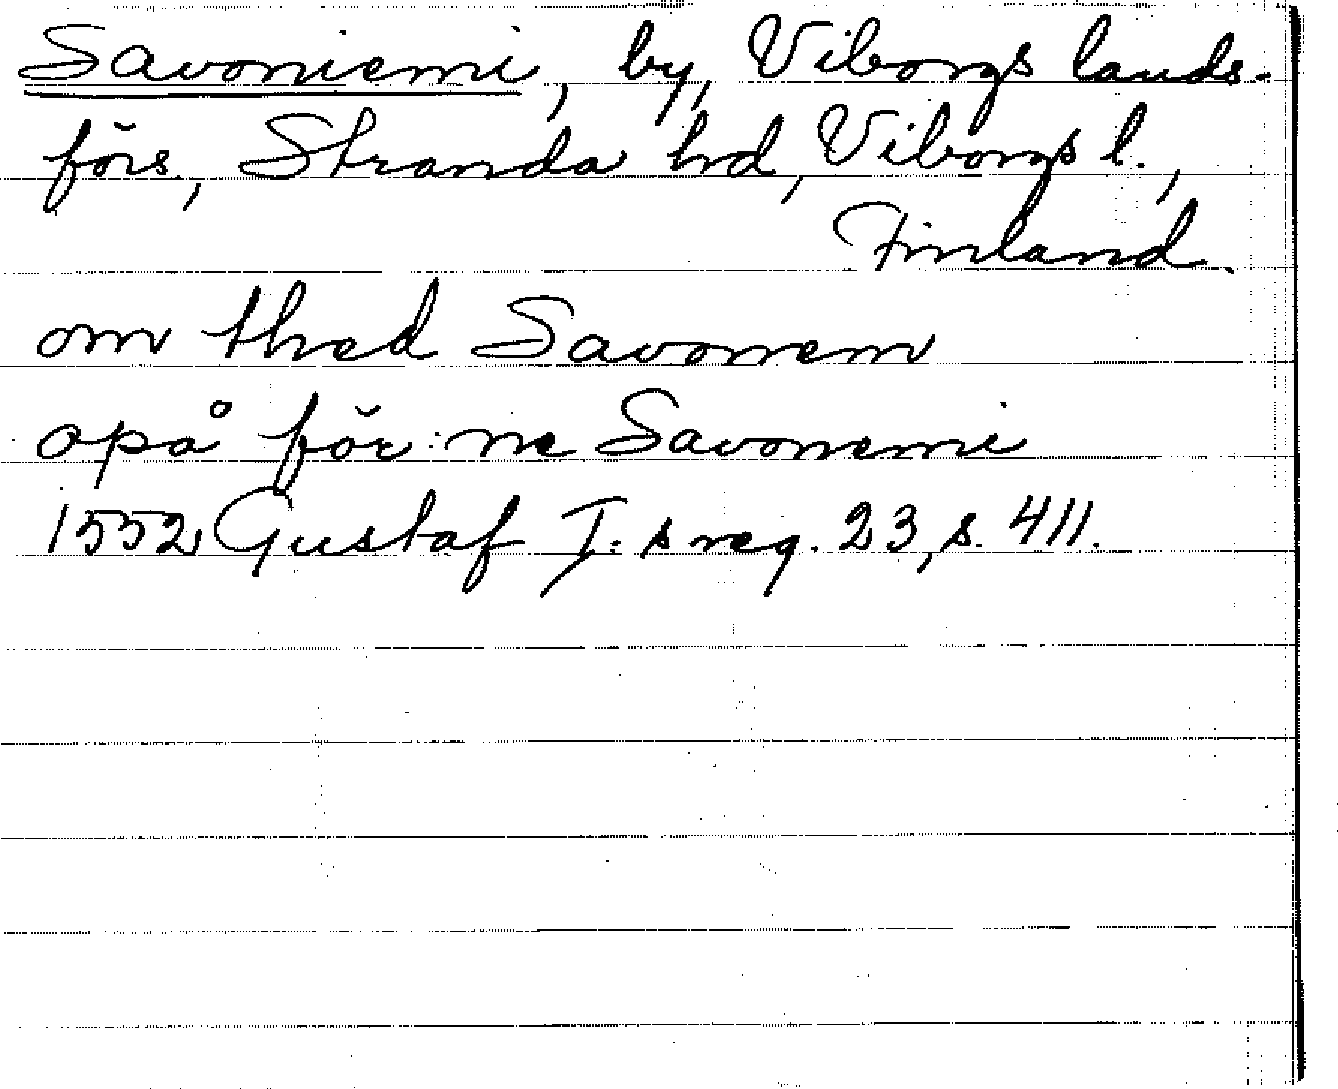 Savoniemi, by, Viborgs lands-
förs, Stranda hd, Viborgs l.,
Finland.
om thed Savonem
opå för:ne Savonemi
1552 Gustaf I:s reg. 23, s. 411.